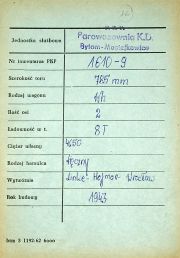 Jednostka służbowa Parowozownia K.D.
Bytom-Maciejkowice
Nr inwentarza PKP 1610-9
Szerokość toru 785 mm
Rodzaj wagonu
Ilość osi 2
Ładowność w t. 8T
Ciężar własny 4650
Rodzaj hamulca ręczny
Wytwórnia Linke-Hofmar Wrocław
Rok budowy 1943